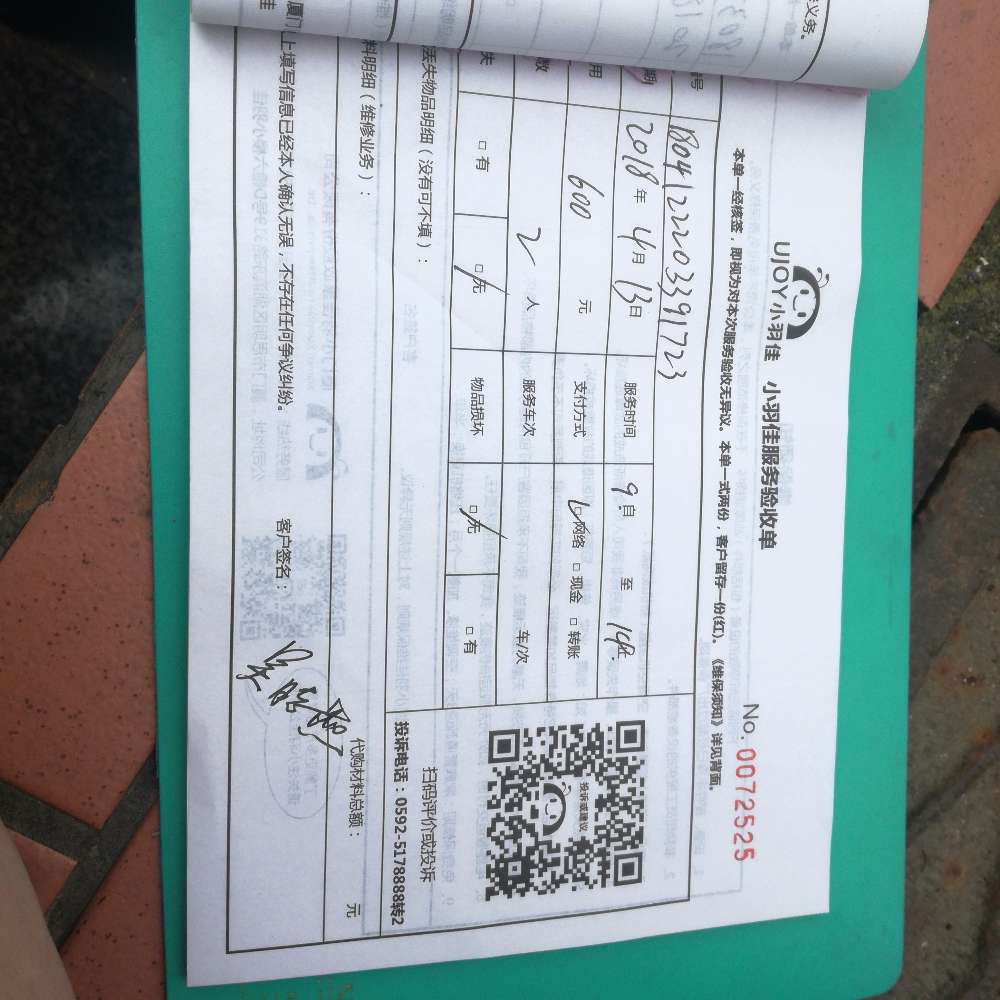 UJOY小羽佳 小羽佳服务验收单
No. 0072525
本单一经核签，即视为对本次服务验收无异议。本单一式两份，客户留存一份(红)。《维保须知》详见背面。
号 1804122203391723
期 2018年 4月 13日 服务时间 9 自 至
用 600 元 支付方式 □网络 □ 现金 □ 转账
数 2 人 服务车次 车/次
失 □ 有 □ 无 物品损坏 □ 无 □ 有
丢失物品明细（没有可不填）：
料明细（维修业务）：
扫码评价或投诉
投诉电话：0592-5178888转2
投诉或建议
代购材料总额： 元
上填写信息已经本人确认无误，不存在任何争议纠纷。 客户签名：
厦门
佳
义务。